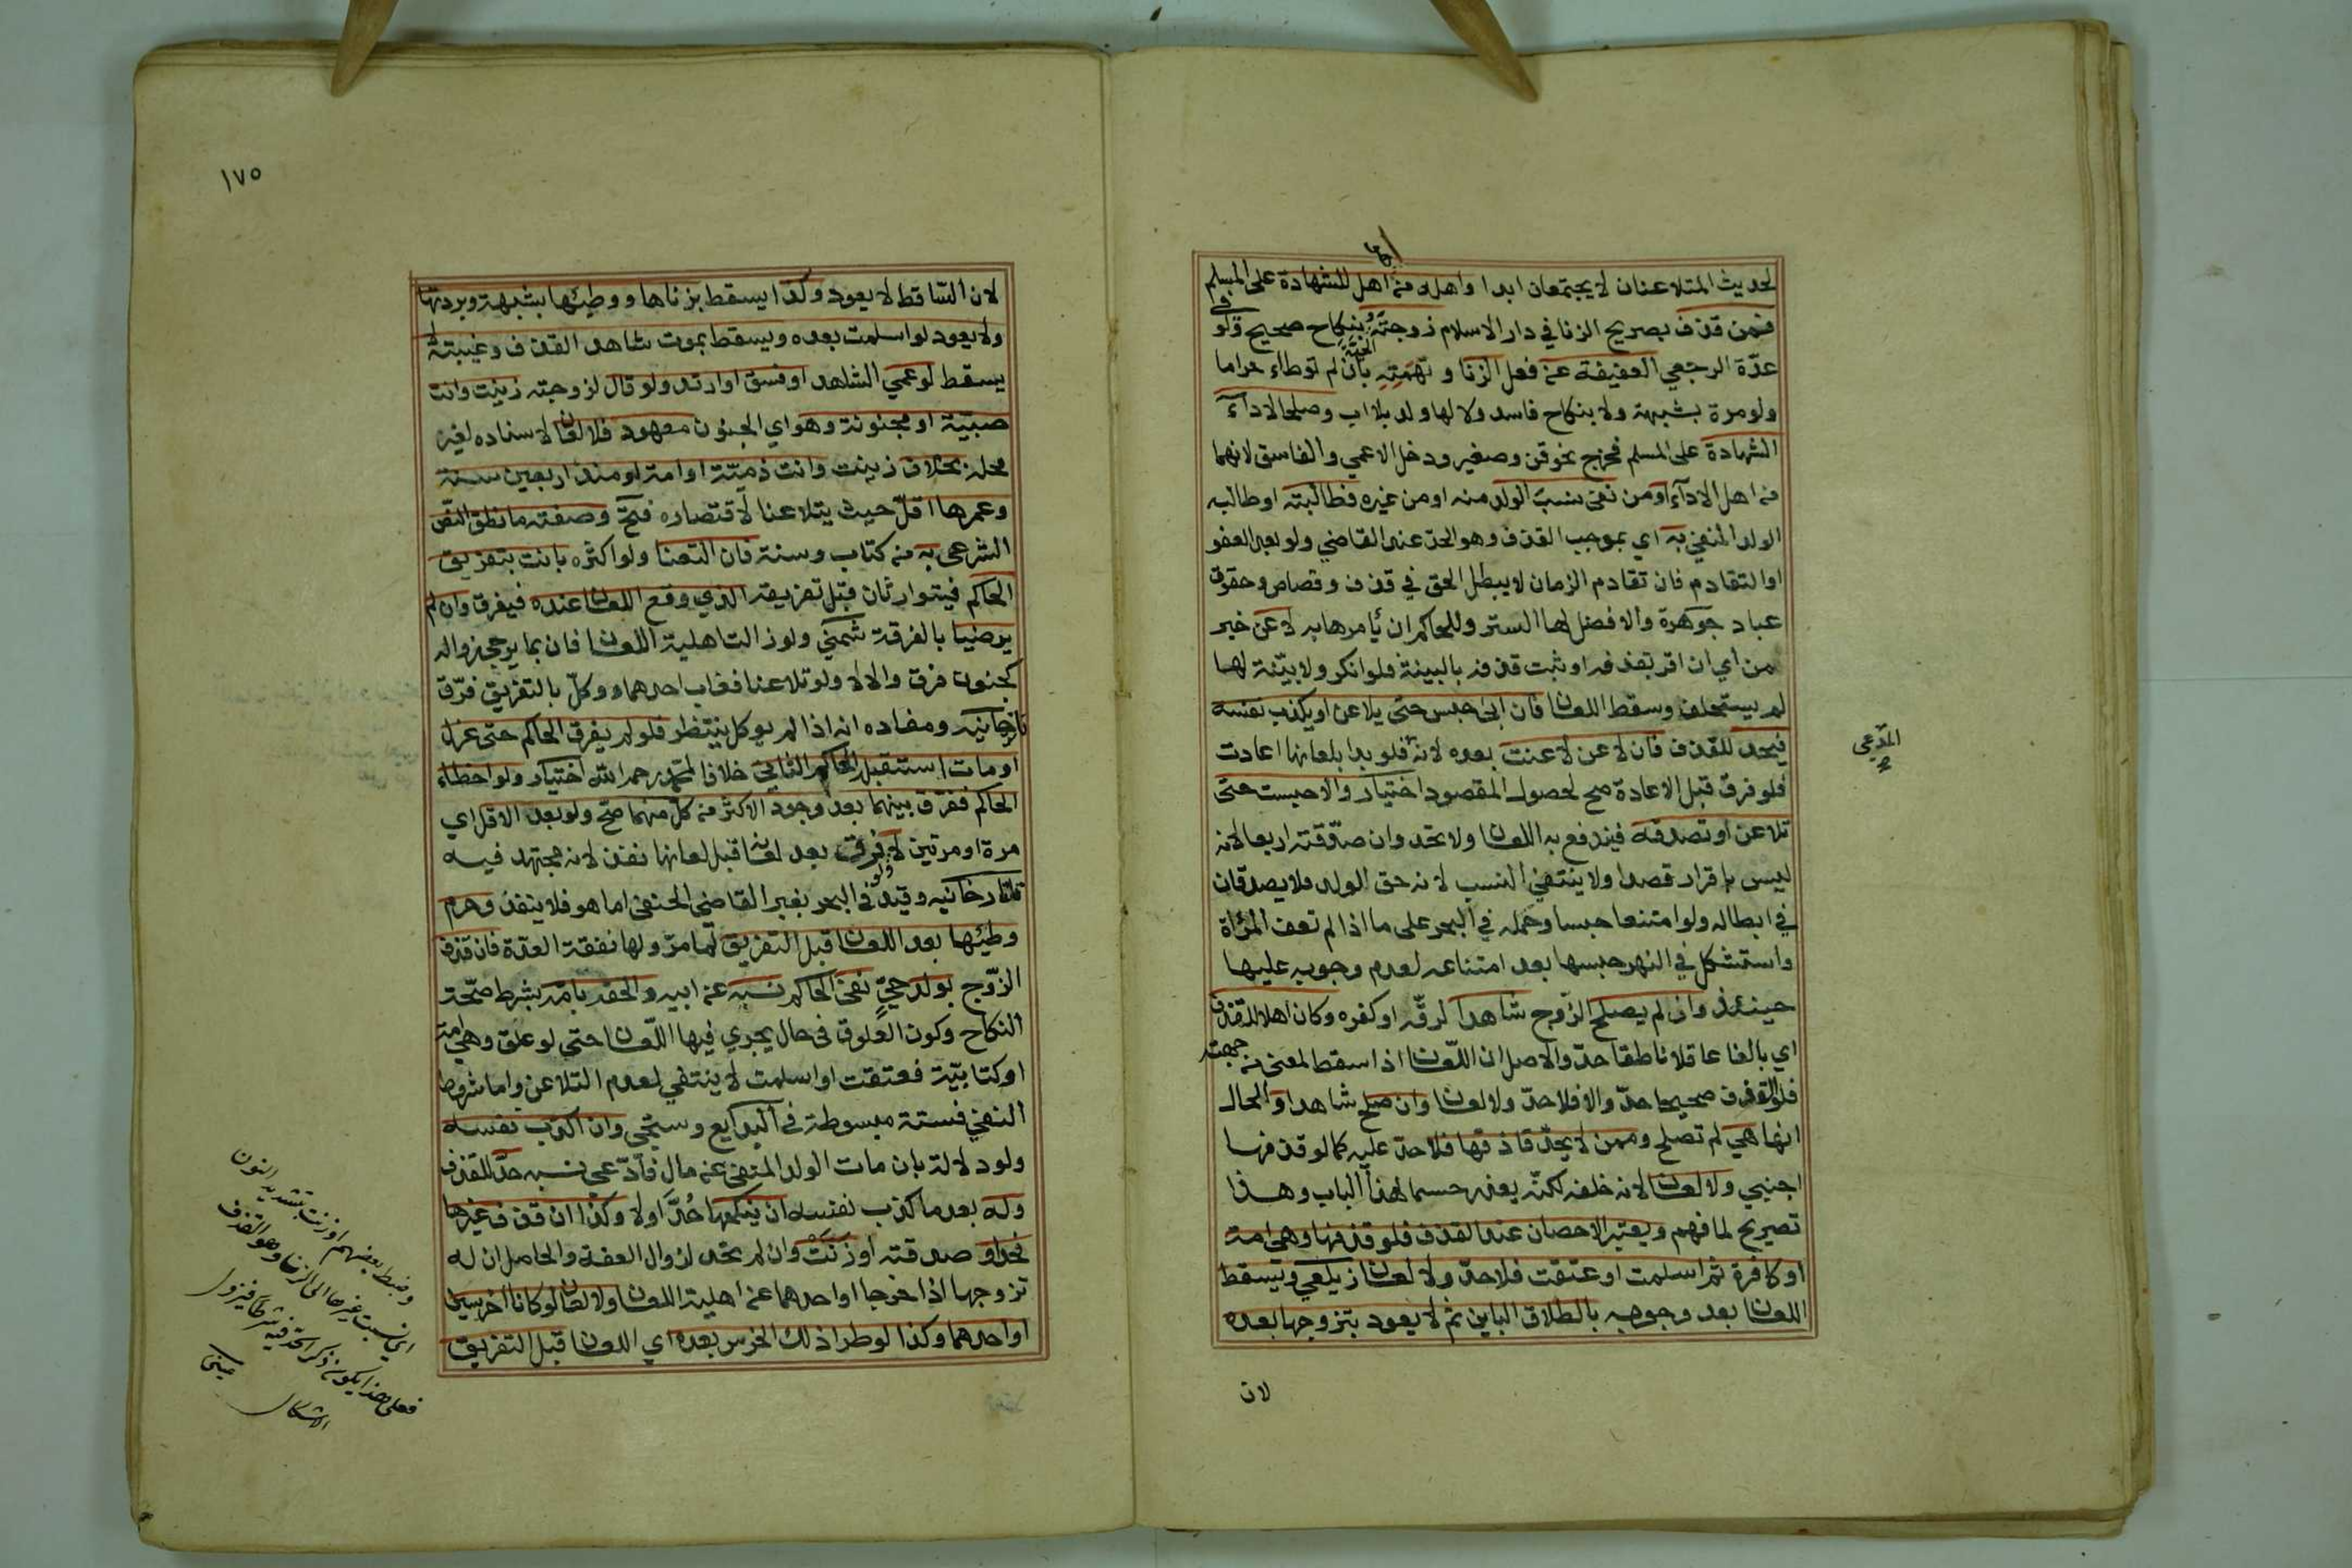 لحديث المتلاعنان لا يجتمعان ابدا واهله من اهل للشهادة على المسلم
فمن قذف بصريح الزنا في دار الاسلام زوجته بنكاح صحيح ولو في
عدّة الرجعي العفيفة عن فعل الزنا وتهمته بان لم توطاء حراما
ولو مرة بشبهة ولا بنكاح فاسد ولا لها ولد بلا اب وصلحا لادآء
الشهادة على المسلم فخرج نحو قن وصغير ودخل الاعمي والفاسق لانهما
من اهل الادآء او من نفى نسب الولد منه او من غيره فطالبته او طالبه
الولد المنفي به اي بموجب القذف وهو الحد عند القاضي ولو بعد العفو
او التقادم فان تقادم الزمان لا يبطل الحق في قذف وقصاص وحقوق
عباد جوهرة والافضل لها الستر وللحاكم ان يأمرها به لاعن خبر
من اي ان اقر بقذفه او ثبت قذفه بالبينة فلو انكر ولا بيّنة لها
لم يستحلف وسقط اللعان فان ابى حبس حتى يلاعن او يكذب نفسه
فيحد للقذف فان لاعن لاعنت بعده لانه فلو بدا بلعانها اعادت
فلو فرق قبل الاعادة صح لحصول المقصود اختيار والا حبست حتى
تلاعن او تصدقه فيندفع به اللعان ولا تحد وان صدّقته اربعا لانه
ليس باقرار قصدا ولا ينتفي النسب لانه حق الولد فلا يصدقان
في ابطاله ولو امتنعا حبسا وحمله في البحر على ما اذا لم تعف المرأة
واستشكل في النهر حبسها بعد امتناعه لعدم وجوبه عليها
حينئذ وان لم يصلح الزوج شاهدا لرقّه او كفره وكان اهلا للقذف
اي بالغا عاقلا ناطقا حدّ والاصل ان اللّعان اذا سقط لمعنى من جهته
فلو القذف صحيحا حدّ والا فلا حدّ ولا لعان وان صلح شاهدا والحال
انها هي لم تصلح وممن لا يحدّ قاذفها فلا حدّ عليه كما لو قذفها
اجنبي ولا لعان لانه خلفه لكنّه يعزر حسما لهذا الباب وهذا
تصريح لما فهم ويعتبر الاحصان عند القذف فلو قذفها وهي امة
او كافرة ثم اسلمت او عتقت فلا حدّ ولا لعان زيلعي ويسقط
اللعان بعد وجوبه بالطلاق الباين ثم لا يعود بتزوجها بعده
لان
المدّعي
صح
١٧٥
لان السّاقط لا يعود وكذا يسقط بزناها ووطيئها بشبهة وبردتها
ولا يعود لو اسلمت بعده ويسقط بموت شاهد القذف وغيبته لا
يسقط لو عمي الشاهد او فسق او ارتد ولو قال لزوجته زنيت وانت
صبيّة او مجنونة وهو اي الجنون معهود فلا لعان لاسناده لغير
محله بخلاف زنيت وانت ذميّة او امة او منذ اربعين سنة
وعمرها اقلّ حيث يتلاعنا لاقتصاره فتح وصفته ما نطق النصّ
الشرعي به من كتاب وسنة فان التعنا ولو اكثره بانت بتفريق
الحاكم فيتوارثان قبل تفريقه الذي وقع اللعان عنده فيفرق وان لم
يرضيا بالفرقة شمني ولو زالت اهلية اللعان فان بما يرجى زواله
كجنون فرق والا لا ولو تلاعنا فغاب احدهما ووكل بالتفريق فرّق
تاترخانيه ومفاده انه اذا لم يوكل ينتظر فلو لم يفرق الحاكم حتى عزل
او مات استقبله الحاكم الثاني خلافا لمحمد رحمه الله اختيار ولو اخطاء
الحاكم ففرّق بينهما بعد وجود الاكثر من كلّ منهما صحّ ولو بعد الاقل اي
مرة او مرتين لا ولو فرق بعد لعانه قبل لعانها نفذ لانه مجتهد فيه
تاتارخانيه وقيده في البحر بغير القاضي الحنفي اما هو فلا ينفذ وحرم
وطيئها بعد اللعان قبل التفريق لما مرّ ولها نفقة العدّة فان قذف
الزّوج بولد حيّ نفى الحاكم نسبه عن ابيه والحقه بامّه بشرط صحّة
النكاح وكون العلوق في حال يجري فيها اللّعان حتى لو علق وهي امة
او كتابيّة فعتقت او اسلمت لا ينتفي لعدم التلاعن واما شروط
النفي فستة مبسوطة في البدايع وستجي وان اكذب نفسه
ولو دلالة بان مات الولد المنفي عن مال فادّعى نسبه حدّ للقذف
وله بعد ما كذب نفسه ان ينكحها حُدَّ او لا وكذا ان قذف غيرها
فحد او صدقته او زنت وان لم تحد لزوال العفة والحاصل ان له
تزوجها اذا خرجا او احدهما عن اهلية اللعان ولا لعان لو كانا اخرسين
او احدهما وكذا لو طرا ذلك الخرس بعده اي اللعان قبل التفريق
وضبط بعضهم او زنت بتشديد النون
اي نسبت غيرها الى الزنا وهو القذف
فعلى هذا يكون ذكر الحد فيه شرطا فيزول
الاشكال عيني